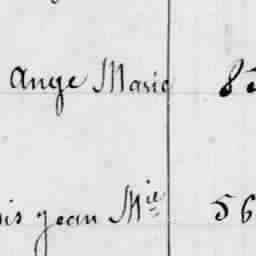 Ange Marie 85
is jean Mie 56